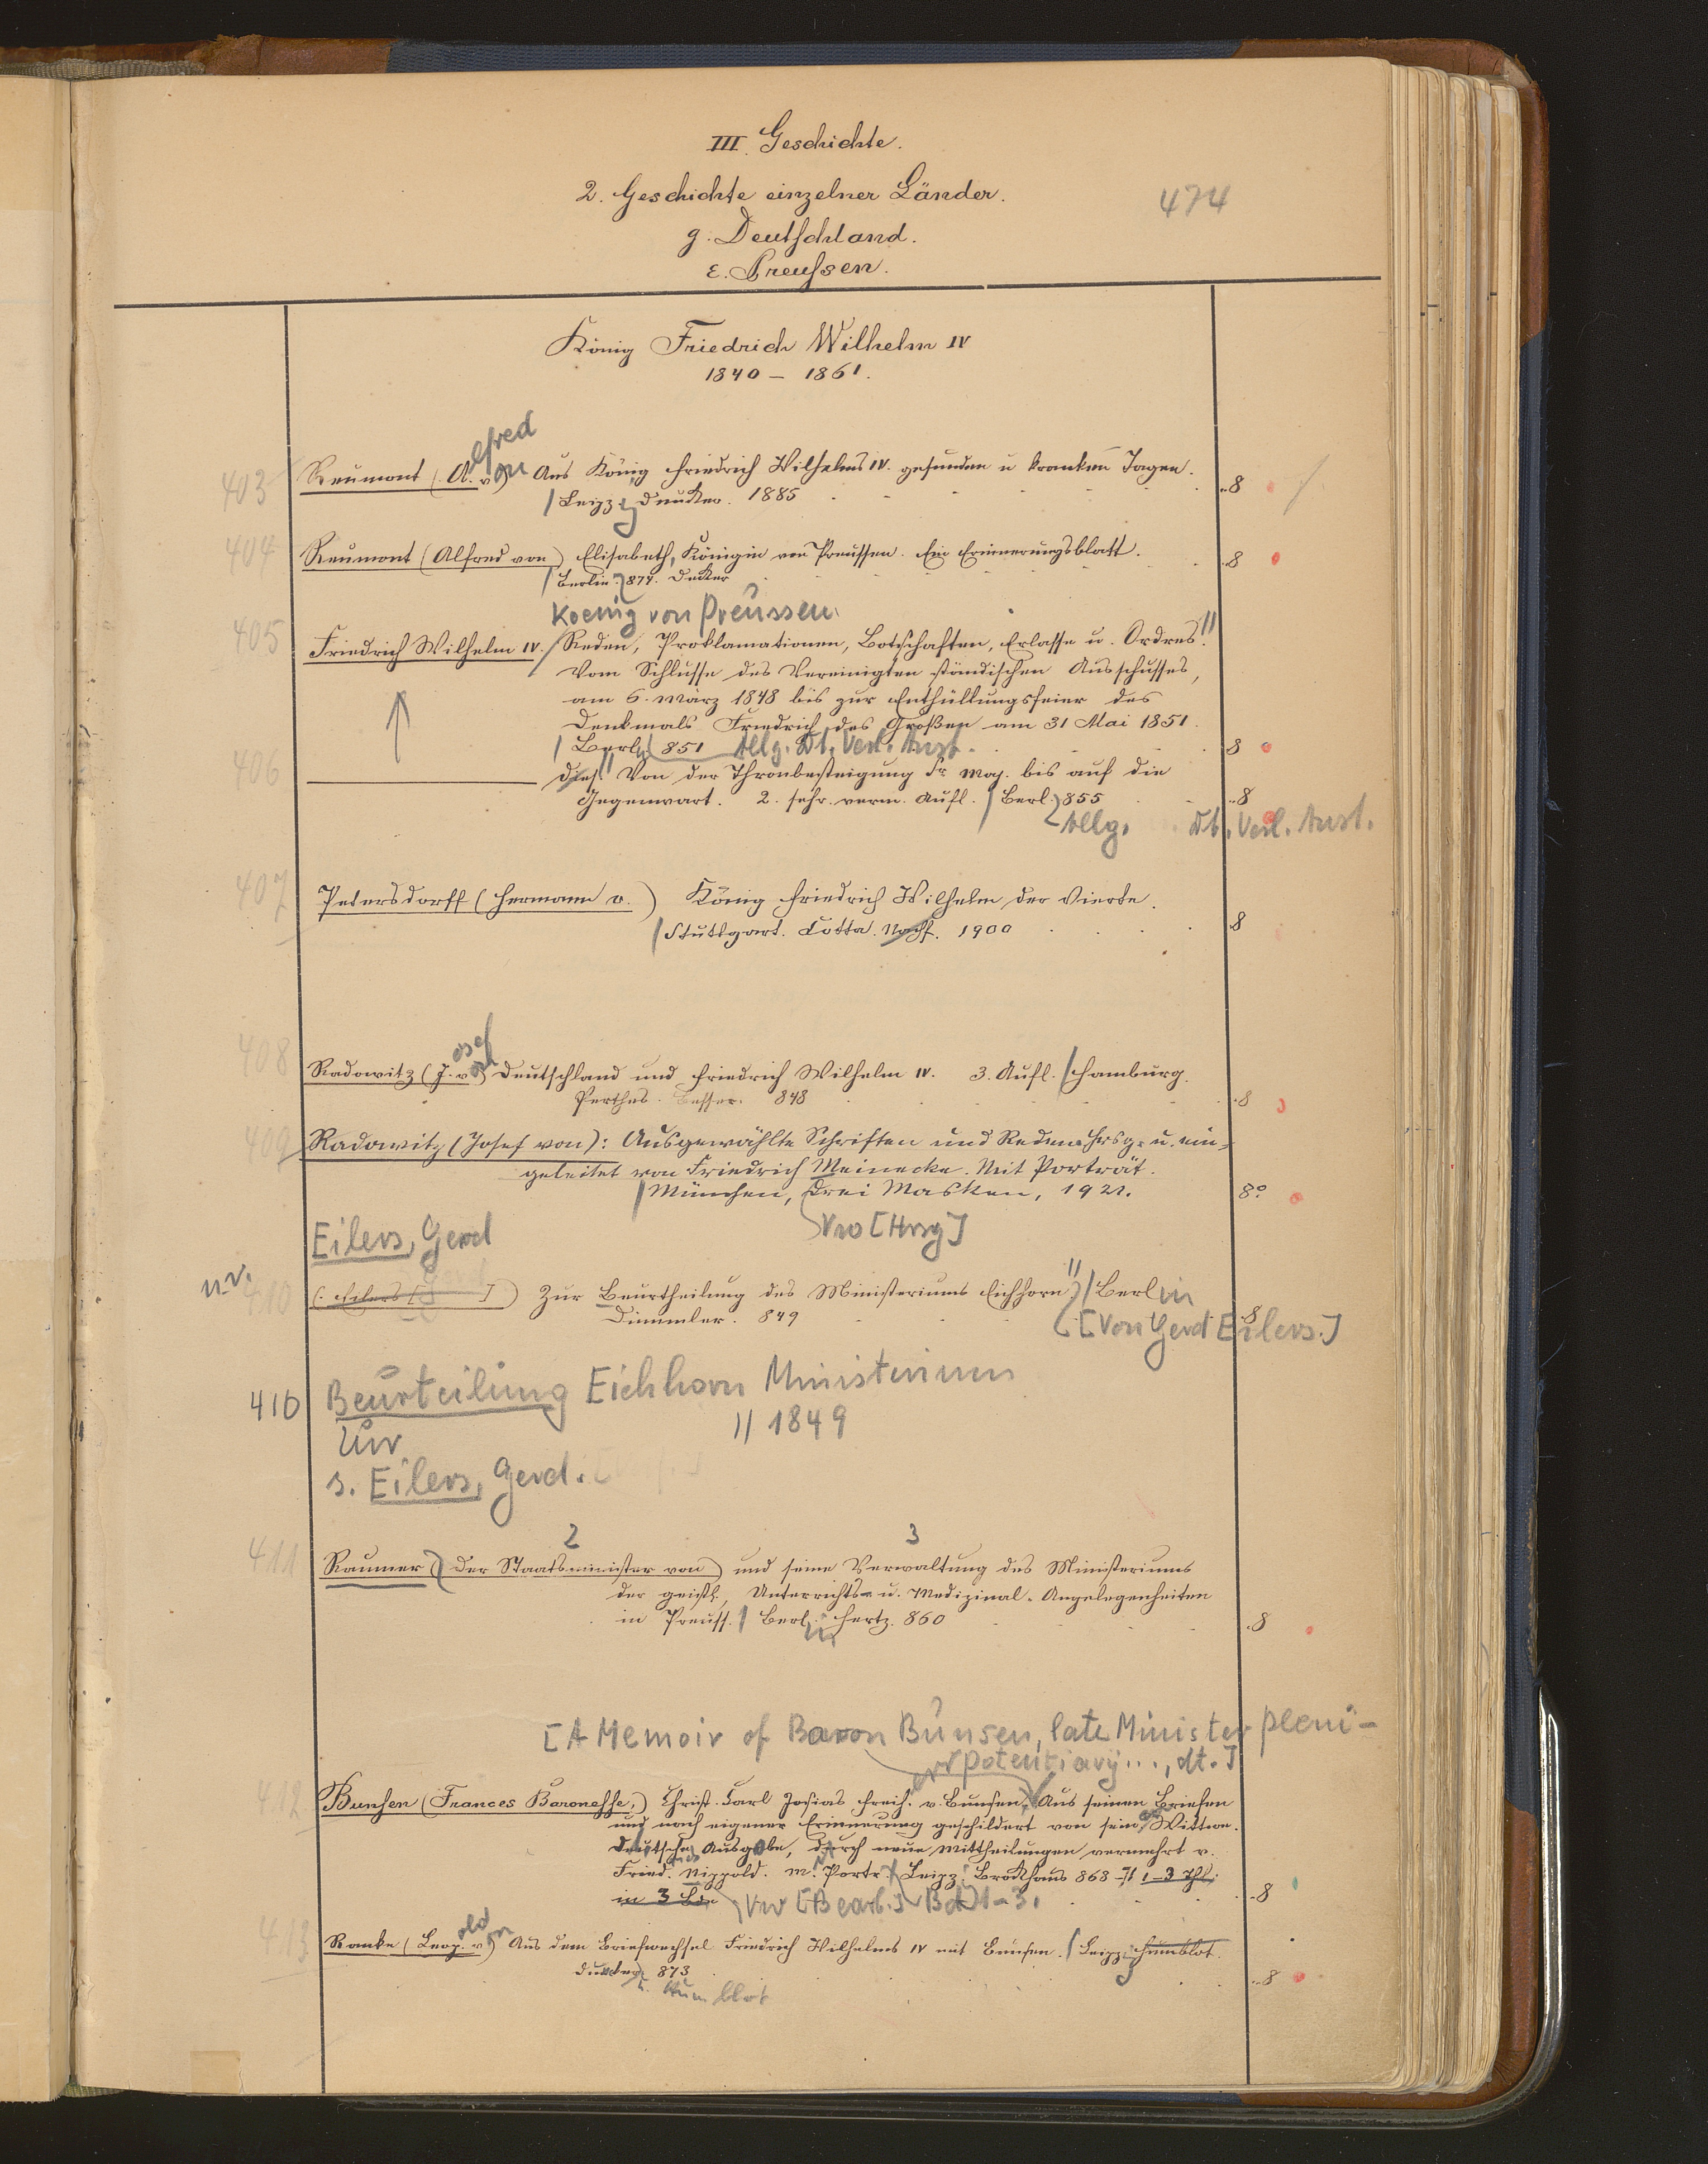 III. Geschichte.
2. Geschichte einzelner Länder.
474
g. Deutschland.
ε. Preußen.
König Friedrich Wilhelm IV
1840 – 1861.
403 Reumont (A.lfred von) Aus König Friedrich Wilhelms IV. gesunden u kranken Tagen.
/ Leipzig Duncker. 1885 8
404 Reumont (Alfred von) Elisabeth, Königin von Preussen. Ein Erinnerungsblatt. 8
/ Berlin. 874. Decker
Koenig von Preussen
405 Friedrich Wilhelm IV. / Reden, Proklamationen, Botschaften, Erlasse u. Ordres.
Vom Schlusse des Vereinigten ständischen Ausschusses,
am 6. März 1848 bis zur Enthüllungsfeier des
Denkmals Friedrich des Großen am 31 Mai 1851.
/ Berlin 851 Allg. Dt. Verl. Anst. 8
406 dies. Von der Thronbesteigung Sr. Maj. bis auf die
Gegenwart. 2. sehr. verm. Aufl. / Berl. 855 8
Allg. Dt. Verl. Anst.
407 Petersdorff (Hermann v.) König Friedrich Wilhelm der Vierte.
/ Stuttgart. Cotta. Nachf. 1900 8
408 Radowitz (J.osef von) Deutschland und Friedrich Wilhelm IV. 3. Aufl. / Hamburg.
Perthes. Besser. 848 8
409 Radowitz (Josef von): Ausgewählte Schriften und Reden. Hrsg. u. ein-
geleitet von Friedrich Meinecke. Mit Porträt.
/ München, Drei Masken, 1921. 8°
Eilers, Gerd
[Hrsg]
n.v. 410 (: Eilers [G ]) Zur Beurtheilung des Ministeriums Eichhorn / Berlin
Dümmler. 849 8
[Von Gerd Eilers.]
410 Beurteilung Eichhorn Ministerium
Zur // 1849
s. Eilers, Gerd.
2 3
411 Raumer (Der Staatsminister von) und seine Verwaltung des Ministeriums
der geistl., Unterrichts- u. Medizinal-Angelegenheiten
in Preuss. / Berlin Hertz. 860 8
[A Memoir of Baron Bunsen, late Minister pleni-
potentiary..., dt.]
412 Bunsen (Frances Baronesse,) Christ. Carl Josias Freih. v. Bunsen, Aus seinen Briefen
und nach eigener Erinnerung geschildert von seiner Wittwe.
Deutsche Ausgabe, durch neue Mittheilungen vermehrt v.
Fried. Nippold. M. Portr. Leipz. Brockhaus 868-71 1–3 Thl.
in 3 Bde [Bearb.] Bd 1–3. 8
413 Ranke (Leopold von) Aus dem Briefwechsel Friedrich Wilhelms IV mit Bunsen. / Leipzig Humblot.
Duncker 873 8
u. Humblot